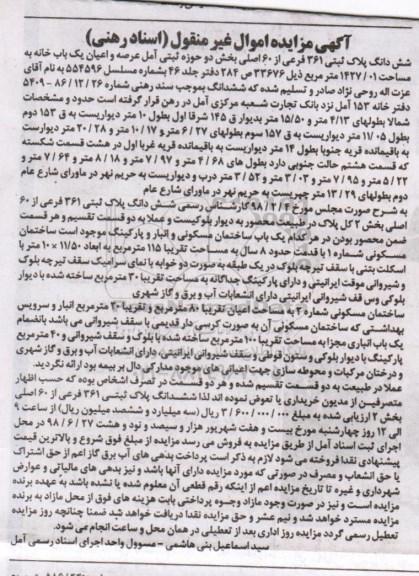 آگهی مزایده اموال غیر منقول (اسناد رهنی)
شش دانگ پلاک ثبتی ۳۶۱ فرعی از ۶۰ اصلی بخش دو حوزه ثبتی آمل عرصه و اعیان یک باب خانه به
مساحت ۱۴۲۷/۰۱ متر مربع ذیل ۳۳۶۷۶ ص ۲۸۴ دفتر جلد ۴۶ بشماره مسلسل ۵۵۴۵۹۶ به نام آقای
عزت اله روحی نژاد صادر و تسلیم شده که ششدانگ بموجب سند رهنی شماره ۸۶/۱۲/۲۶ - ۵۴۰۹
دفتر خانه ۱۵۳ آمل نزد بانک تجارت شعبه مرکزی آمل در رهن قرار گرفته است حدود و مشخصات
شمالا بطولهای ۴/۱۳ متر و ۱۵/۵۰ متر بدیوار ق ۱۴۵ شرقا اول بطول ۱۰ متر دیواریست به ق ۱۵۳ دوم
بطول ۱۱/۰۵ متر دیواریست به ق ۱۵۷ سوم بطولهای ۶/۲۷ متر و ۱۰/۱۷ متر و ۲۰/۲۸ متر دیواریست
به باقیمانده قریه جنوبا بطول ۱۴ متر دیواریست به باقیمانده قریه غربا اول در هشت قسمت شکسته
که قسمت هشتم حالت جنوبی دارد بطول های ۴/۶۸ متر و ۷/۹۷ متر و ۸/۱۸ متر و ۷/۶۴ متر و
۵/۲۳ متر و ۷/۹۵ متر و ۳/۰۳ متر و ۳/۵۲ متر درب و دیواریست به حریم نهر در ماورای شارع عام
دوم بطولهای ۱۳/۲۹ متر چپریست به حریم نهر در ماورای شارع عام
به شرح صورت مجلس مورخ ۹۸/۲/۴ کارشناس رسمی شش دانگ پلاک ثبتی ۳۶۱ فرعی از ۶۰
اصلی بخش ۲ کل پلاک در طبیعت محصور به دیوار بلوکیست و عملا به دو قسمت تقسیم و هر قسمت
ضمن محصور بودن در هر کدام یک باب ساختمان مسکونی و انبار و پارکینگ موجود است ساختمان
مسکونی شماره ۱ با قدمت حدود ۸ سال به مساحت تقریبا ۱۱۵ مترمربع به ابعاد ۱۱/۵۰ × ۱۰ متر با
اسکلت بتنی با سقف تیرچه بلوک در یک طبقه به صورت دو خوابه با نمای سرامیک سقف تیرچه بلوک
و شیروانی موقت ایرانیتی و دارای پارکینگ جداگانه به مساحت تقریبا ۳۰ مترمربع ساخته شده با دیوار
بلوکی و سقف شیروانی ایرانیتی دارای انشعابات آب و برق و گاز شهری
ساختمان مسکونی شماره ۲ به مساحت اعیان تقریبا ۸۰ مترمربع و تقریبا ۲۰ مترمربع انبار و سرویس
بهداشتی که ساختمان مسکونی آن به صورت کرسی دار قدیمی با سقف شیروانی می باشد بانضمام
یک باب انباری مجزا به مساحت تقریبا ۱۰۰ مترمربع ساخته شده با بلوک و سقف شیروانی و ۴۰ مترمربع
پارکینگ با دیوار بلوکی و ستون قوطی و سقف شیروانی ایرانیتی دارای انشعابات آب و برق و گاز شهری
و درختان مرکبات و محوطه سازی جهت اعیانی های موجود مدارکی دال بر بیمه بود ارائه نگردید.
عملا در طبیعت به دو قسمت تقسیم شده و هر دو قسمت در تصرف اشخاص بوده که حسب اظهار
متصرفین از مدیون خریداری یا تعوض نموده اند لذا ششدانگ پلاک ثبتی ۳۶۱ فرعی از ۶۰ اصلی
بخش ۲ ارزیابی شده به مبلغ ۳/۶۰۰/۰۰۰/۰۰۰ ریال (سه میلیارد و ششصد میلیون ریال) از ساعت ۹
الی ۱۲ روز چهارشنبه مورخ بیست و هفت شهریور هزار و سیصد و نود و هشت ۹۸/۶/۲۷ در محل
اجرای ثبت اسناد آمل از طریق مزایده به فروش می رسد مزایده از مبلغ فوق شروع و بالاترین قیمت
پیشنهادی نقدا فروخته می شود لازم به ذکر است پرداخت بدهی های آب برق گاز اعم از حق اشتراک
یا حق انشعاب و مصرف در صورتی که مورد مزایده دارای آنها باشد و نیز بدهی های مالیاتی و عوارض
شهرداری و غیره تا تاریخ مزایده اعم از اینکه رقم قطعی آن معلوم شده یا نشده باشد به عهده برنده
مزایده است و نیز در صورت وجود مازاد وجوه پرداختی بابت هزینه های فوق از محل مازاد به برنده
مزایده مسترد خواهد شد و نیم عشر و حق مزایده نقدا دریافت خواهد شد ضمنا چنانچه روز مزایده
تعطیل رسمی گردد مزایده روز اداری بعد از تعطیلی در همان محل و ساعت انجام می شود.
سید اسماعیل بنی هاشمی - مسوول واحد اجرای اسناد رسمی آمل